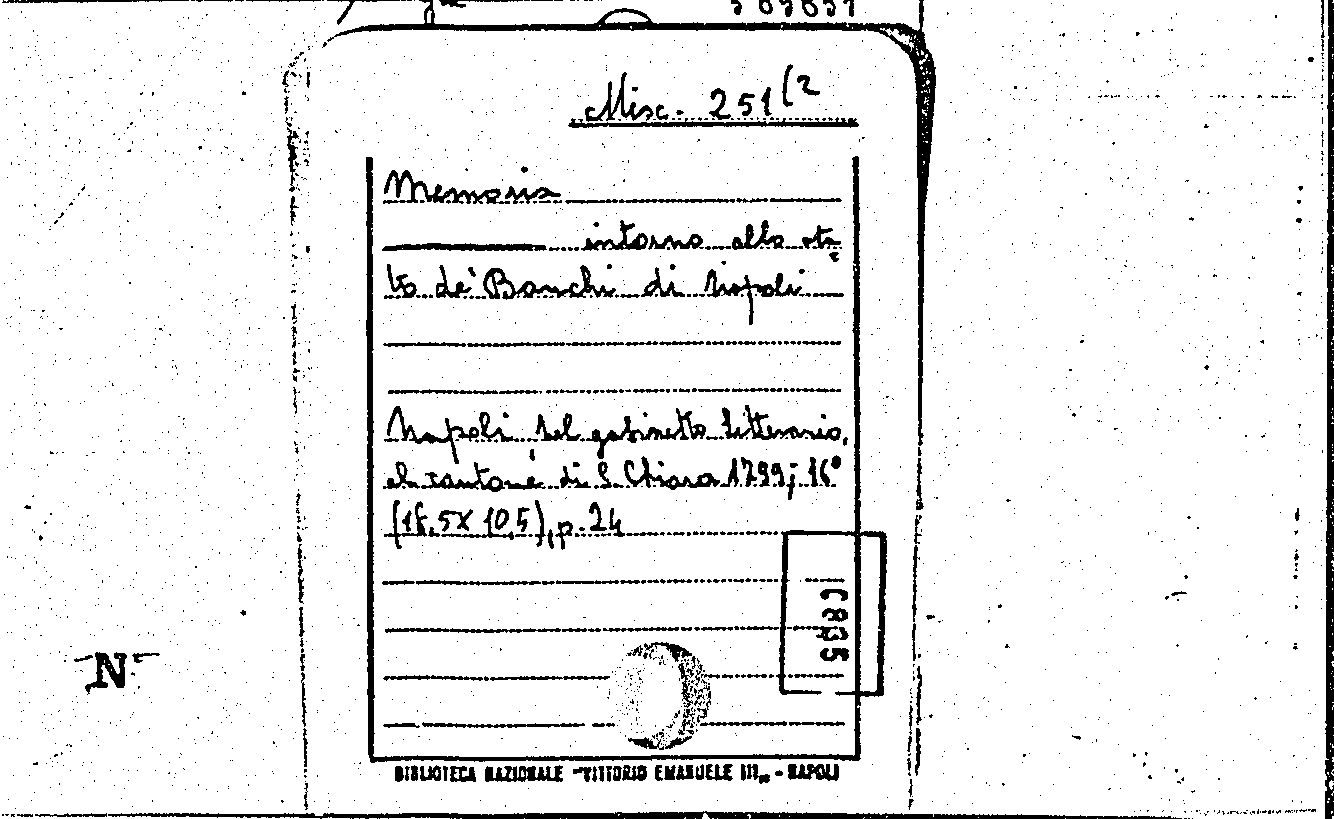 Misc. 251/2
Memoria
intorno allo sta
to de' Banchi di Napoli
Napoli, nel gabinetto letterario,
al cantone di S. Chiara 1799; 16°
(18,5 X 10,5), p. 24
C835
N
BIBLIOTECA NAZIONALE "VITTORIO EMANUELE III" - NAPOLI